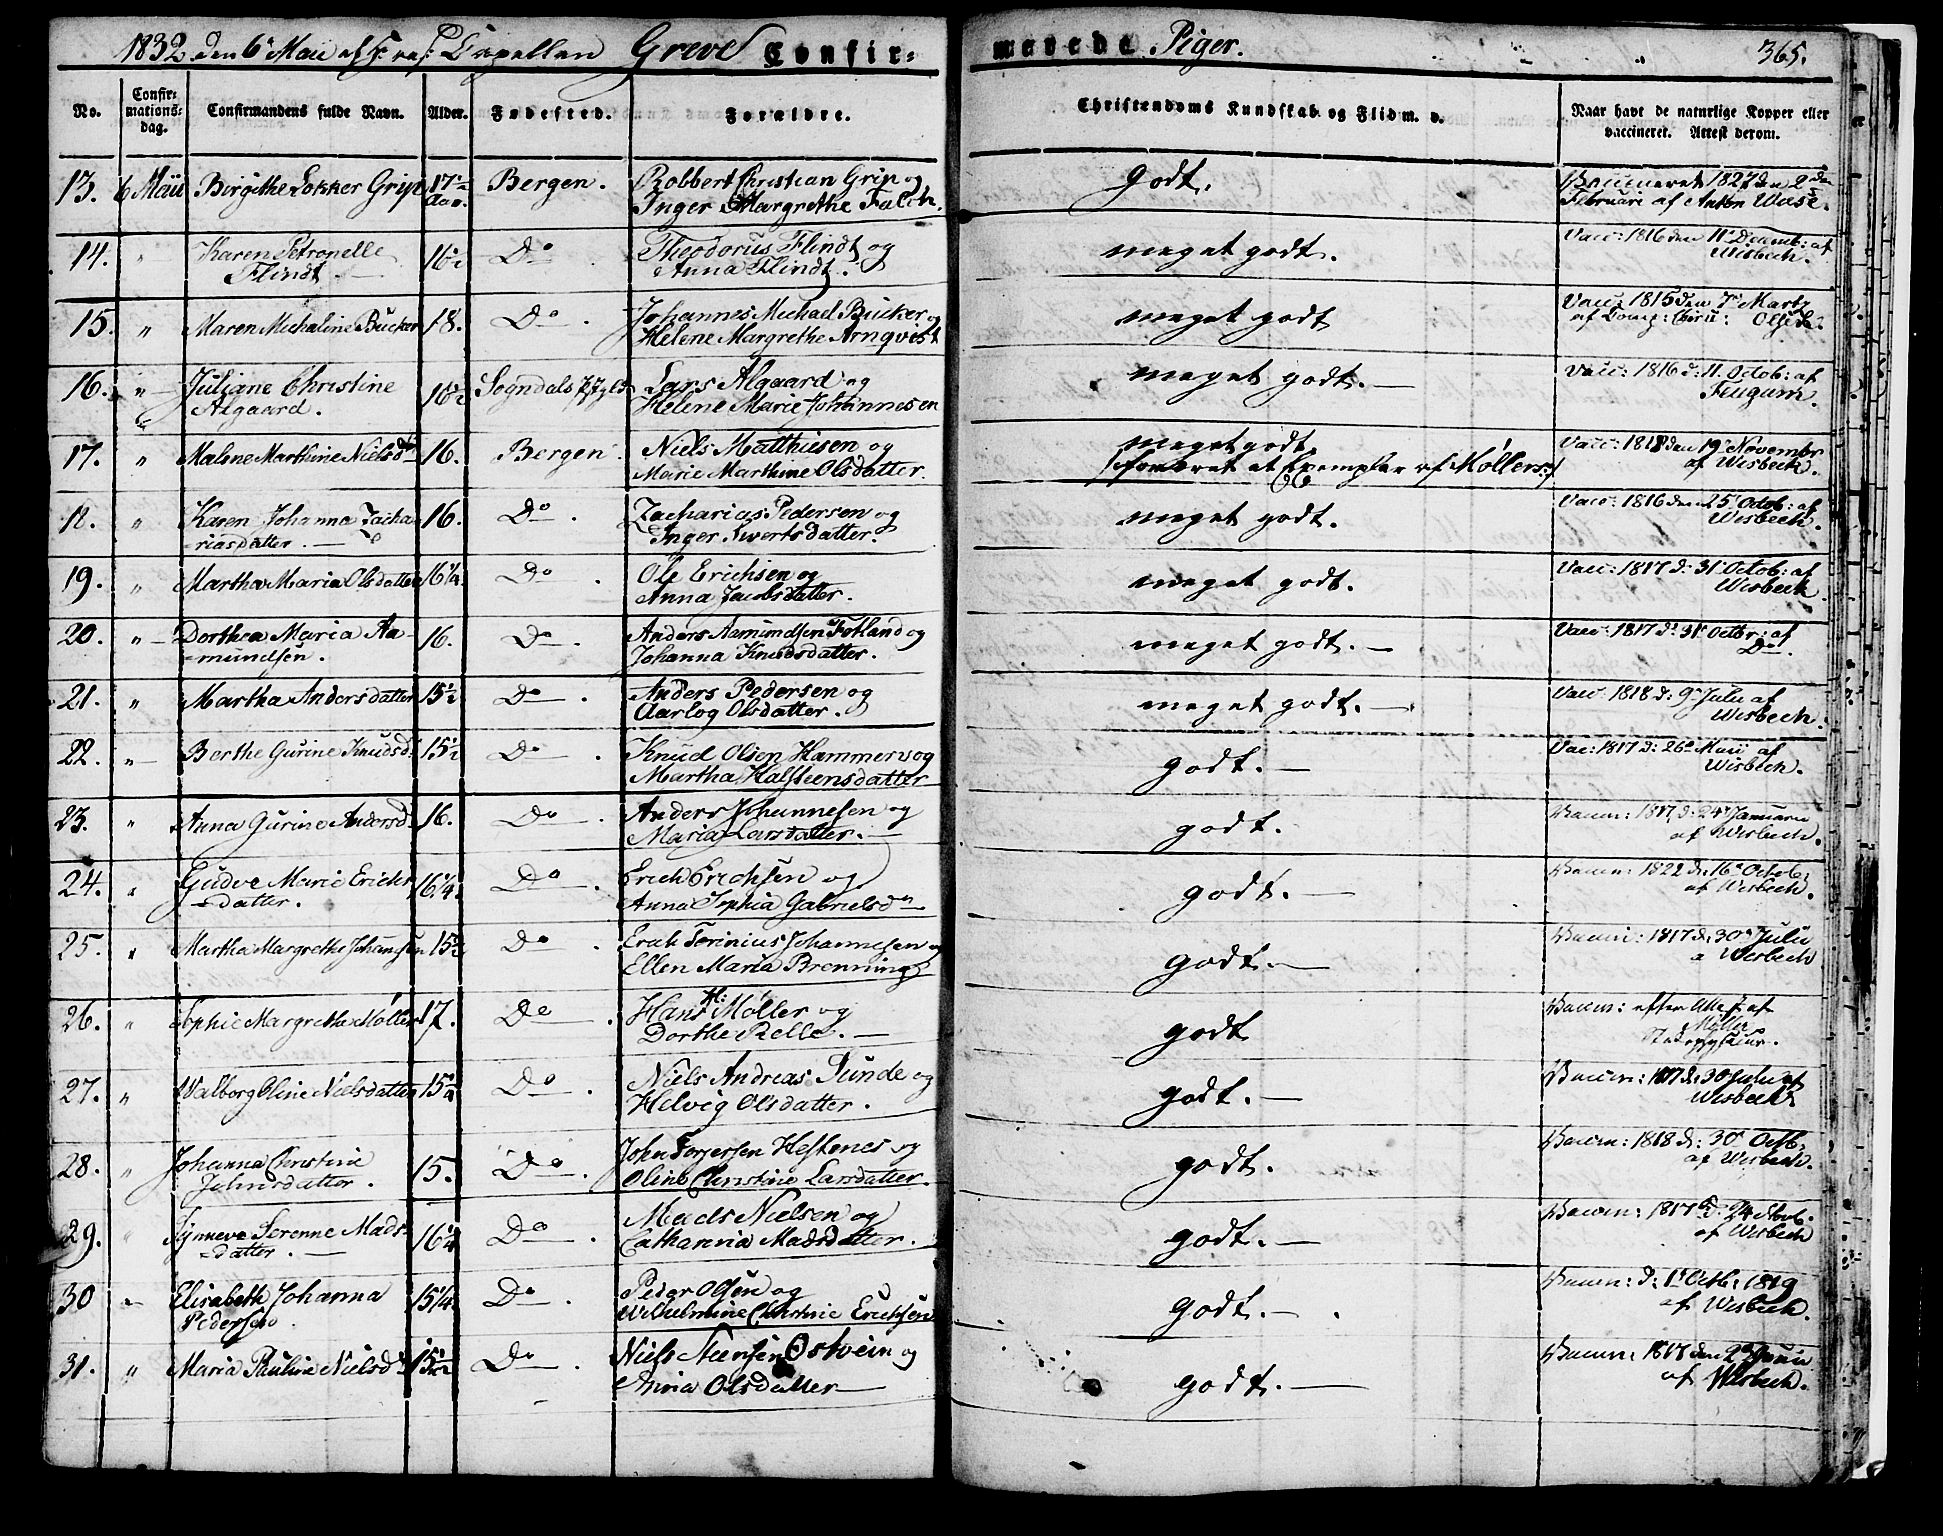 1832 den 6 Maii af Capellan Greve Confir-
merede Piger. 365.
No. Confir-mations-dag. Confirmandens fulde Navn. Alder. Fødested. Forældre. Christendoms Kundskab og Flid m. v. Naar havt de naturlige Kopper eller vaccineret. Attest derom.
13. 6 Maii Birgithe Lokker Grip 17 Aar. Bergen. Robbert Christian Grip og godt. 1827 den 2den
Inger Margrethe Falch. Februari af Anton Wiese.
14. " Karen Petronelle 16½ Do Theodorus Flindt og meget godt. Vacc: 1816 den 11 Decemb: af
Flindt Anna Flindt. Wisbech.
15. " Maren Michaline Bucker 18. Do. Johannes Michael Bucker og meget godt Vacc: 1815 den 7 Martz
Helene Margrethe Arnqvist af Comp: Chiru:
16. " Juliane Christine 16½ Sogndals Lars Algaard og meget godt. Vacc: 1816 d: 11 Octob: af
Algaard. Helene Marie Johannesen Feugum.
17. " Malene Marthine Nielsdr 16. Bergen. Niels Matthiesen og meget godt Vacc: 1818 den 19 Novembr
Marie Marthine Olsdatter. foræret et Exemplar af Møllers af Wisbech.
18. " Karen Johanna Zacha- 16. Do. Zacharias Pedersen og meget godt. Vacc: 1816 den 25 Octob: af
riasdatter. Inger Iwertsdatter. Wisbech.
19. " Martha Maria Olsdatter 16¼ Do. Ole Erichsen og meget godt. Vacc: 1817 d: 31 Octob: af
Anna Jacobsdatter. Wisbeck
20. " Dorthea Maria Aa- 16. Do. Anders Aamundsen Fotland og meget godt. Vacc: 1817 d: 31 Octbr: af
mundsen. Johanna Knudsdatter. Do.
21. " Martha Andersdatter 15½ Do. Anders Pedersen og meget godt. Vacc: 1818 d: 9 Julii af
Aarlog Olsdatter. Wisbech.
22. " Berthe Gurine Knudsd. 15½ Do. Knud Olsen Hammer og godt. Vac: 1817 d: 26 Maii af
Martha Halsteensdatter Wisbech.
23. " Anna Gurine Andersd. 16. Do. Anders Johannesen og godt. Vaccin: 1817 d: 24 Januarii
Maria Larsdatter. af Wisbech.
24. " Gudve Marie Erichs 16¼ Do. Erich Erichsen og godt. Vaccin: 1822 d: 16 Octob:
datter. Anna Sophia Gabrielsdr af Wisbech.
25. " Martha Margrethe Johansen 15½ Do. Erich Johannesen og godt. Vaccin: 1817 d: 30 Julii
Ellen Maria Brenning a Wisbech
26. " Sophie Margretha Møller 17. Do. Hans H: Møller og godt Vaccin: efter Attest af
Dorthe Relle. Møller
27. " Walborg Oline Nielsdatter 15 Do. Niels Andreas Sunde og godt. Vaccin: 1817 d: 30 Julii af
Helvig Olsdatter. Wisbech
28. " Johanna Christine 15. Do. John Torgersen Hestenes og godt. Vaccin: 1818 d: 30 Octb.
Johnsdatter. Oline Christine Larsdatter. af Wisbech.
29. " Synneve Serenne Mads 16¼ Do. Mads Nielsen og godt. Vaccin: 1817 d: 24
datter. Catharina Madsdatter. af Wisbech
30 " Elisabeth Johanna 15¼ Do. Peder Olsen og godt. Vaccin: d: 1 Octb: 1819
Pedersen. Wilhelmine Christine Erichsen af Wisbech.
31. " Maria Pauline Nielsd 15½ Do Niels Steensen Ostvein og godt. Vaccin: 1817 den 2 Junii
Anna Olsdatter af Wisbech.